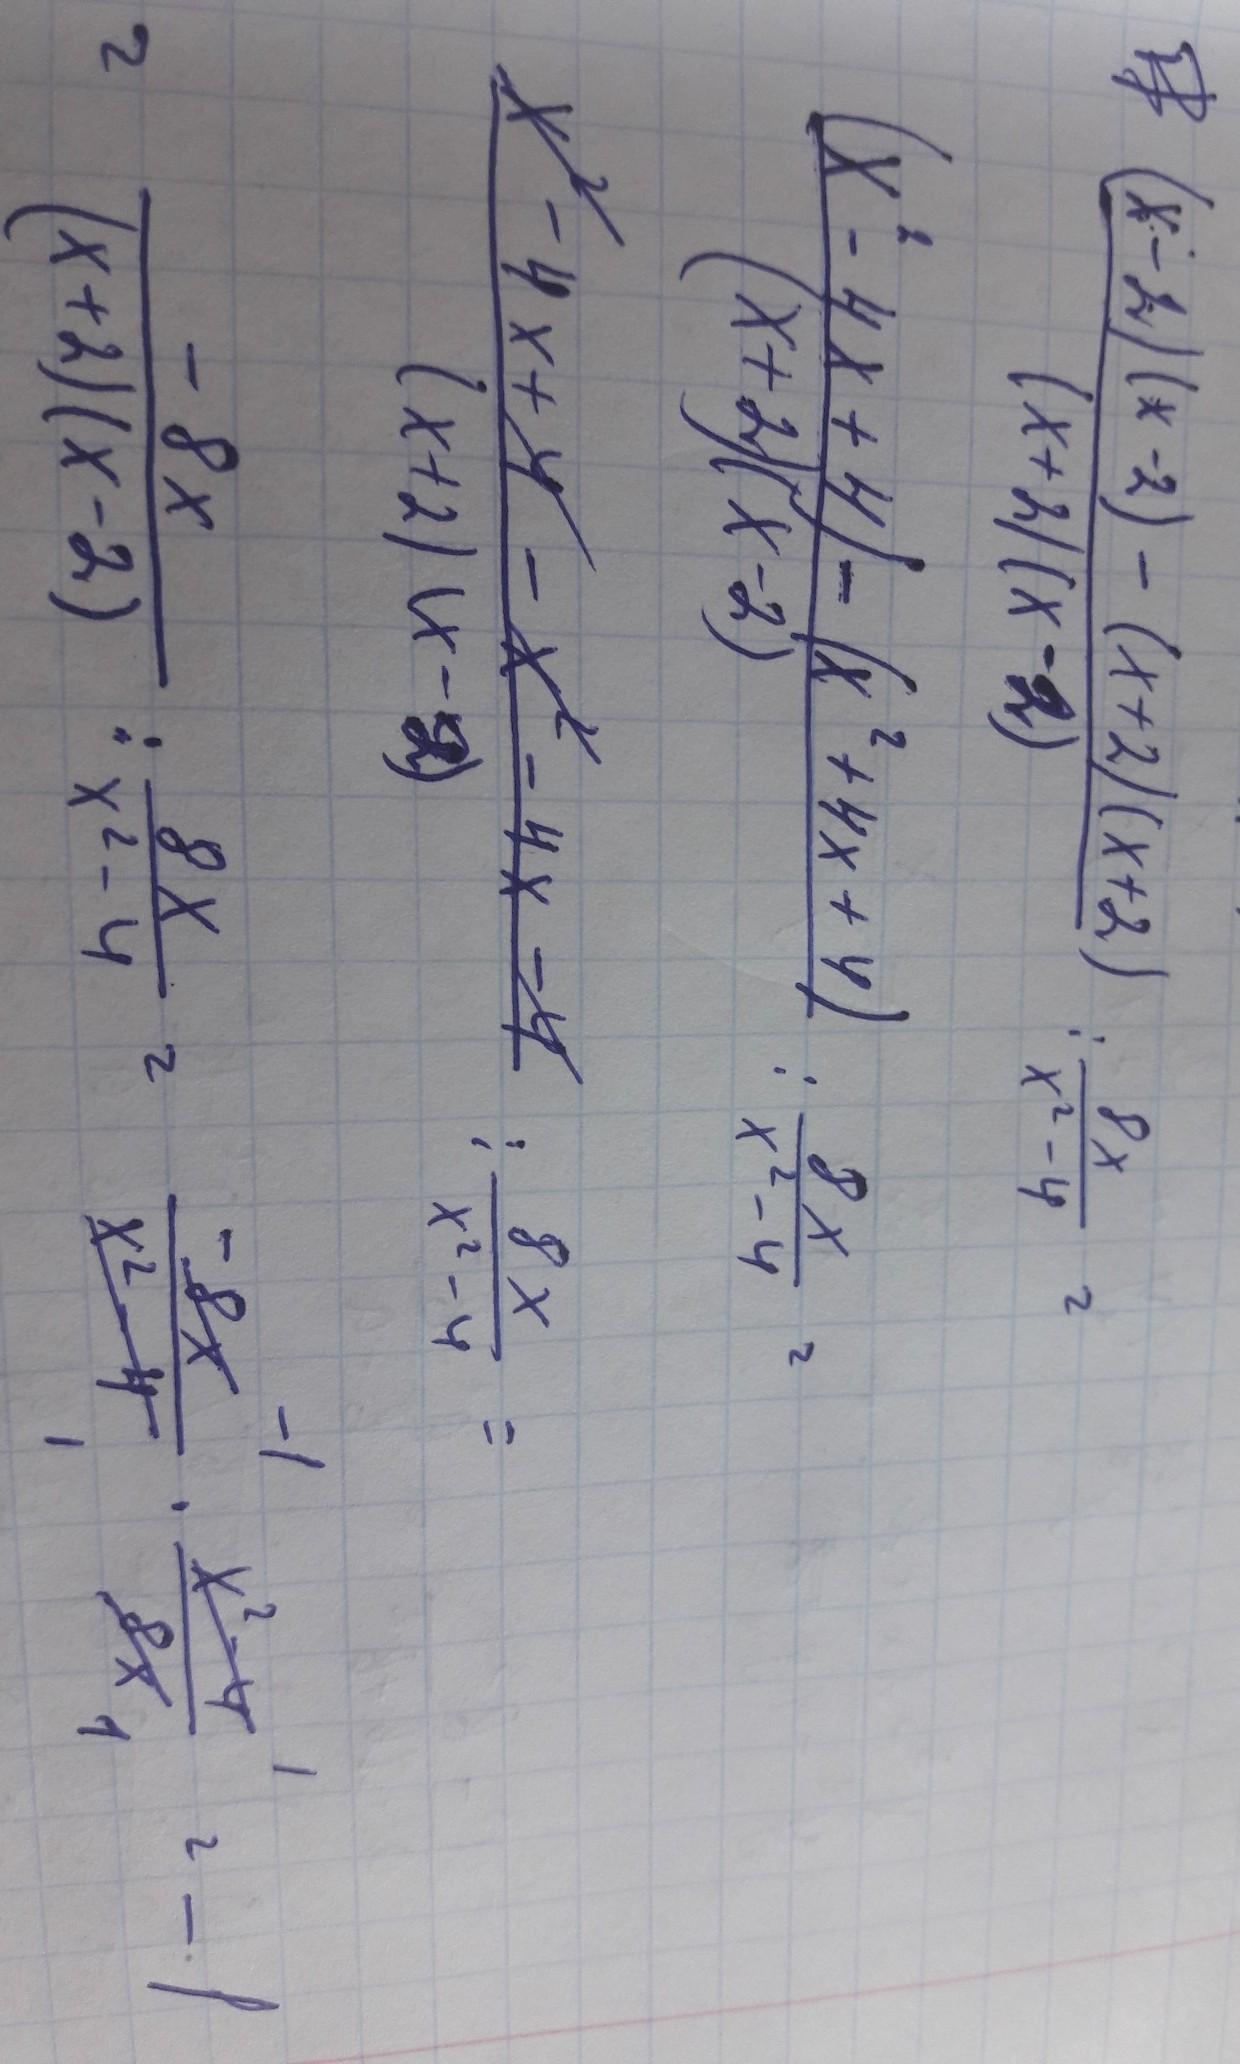 (x-2)(x-2) - (x+2)(x+2) / (x+2)(x-2) : 8x / x² - 4 =
(x² - 4x + 4) - (x² + 4x + 4) / (x+2)(x-2) : 8x / x² - 4 =
x² - 4x + 4 - x² - 4x - 4 / (x+2)(x-2) : 8x / x² - 4 =
= - 8x / (x+2)(x-2) : 8x / x² - 4 = - 8x / x² - 4 · x² - 4 / 8x = - 1
-1 1
1 1